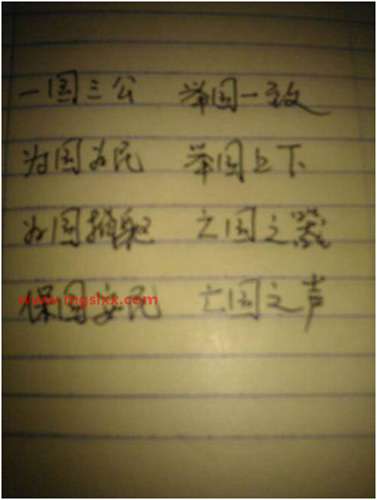 一国三公 举国一致
为国为民 举国上下
为国捐躯 亡国之器
保国安民 亡国之声
www.thgshxx.com